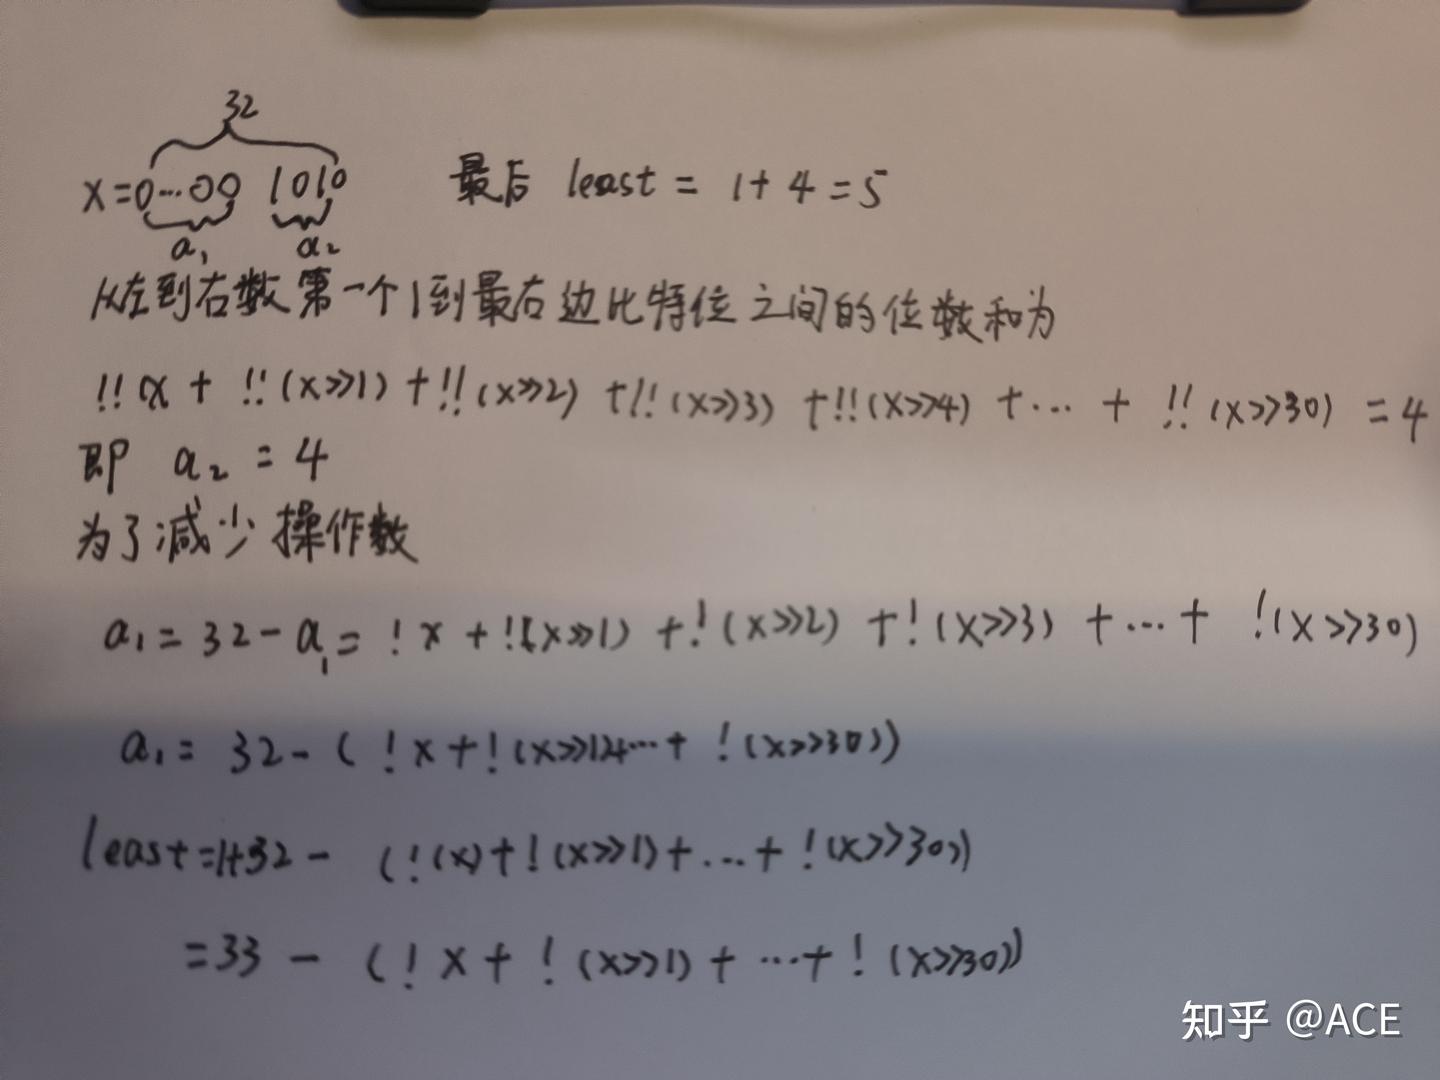 32
x=0...00 1010 最后 least = 1+4=5
a₁ a₂
从左到右数第一个1到最右边比特位之间的位数和为
!!(x + !!(x>>1) +!!(x>>2) +!!(x>>3) +!!(x>>4) +... + !!(x>>30) =4
即 a₂ =4
为了减少操作数
a₁= 32-a₁= !x +!(x>>1) +!(x>>2) +!(x>>3) +...+ !(x>>30)
a₁= 32-(!x+!(x>>1)+...+ !(x>>30))
least=1+32- (!(x)+!(x>>1)+...+!(x>>30))
=33 - (!x+!(x>>1)+...+!(x>>30))
知乎 @ACE